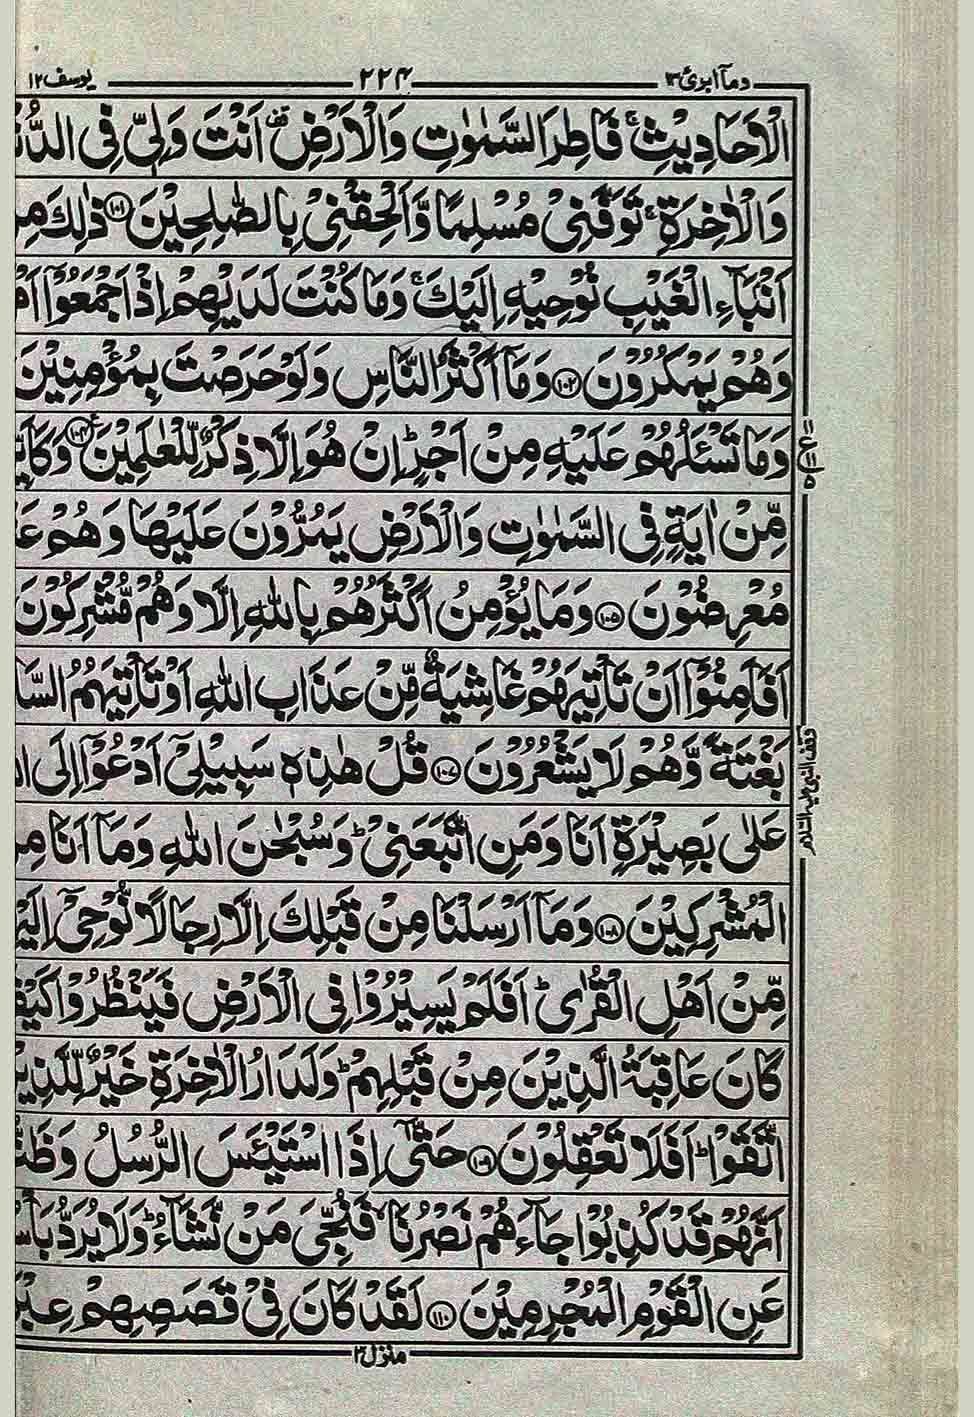 وما ابرئ ۱۳ ۲۲۴ يوسف ۱۲
الْاَحَادِيْثِ ۚ فَاطِرَ السَّمٰوٰتِ وَالْاَرْضِ ۫ اَنْتَ وَلِيّٖ فِى
وَالْاٰخِرَةِ ۚ تَوَفَّنِىْ مُسْلِمًا وَّاَلْحِقْنِىْ بِالصّٰلِحِيْنَ ﴿۱۰۱﴾ ذٰلِكَ
اَنْۢبَآءِ الْغَيْبِ نُوْحِيْهِ اِلَيْكَ ۚ وَمَا كُنْتَ لَدَيْهِمْ اِذْ اَجْمَعُوْۤا
وَهُمْ يَمْكُرُوْنَ ﴿۱۰۲﴾ وَمَاۤ اَكْثَرُ النَّاسِ وَلَوْ حَرَصْتَ بِمُؤْمِنِيْنَ
وَمَا تَسْـَٔلُهُمْ عَلَيْهِ مِنْ اَجْرٍ ؕ اِنْ هُوَ اِلَّا ذِكْرٌ لِّلْعٰلَمِيْنَ ﴿۱۰۴﴾
مِّنْ اٰيَةٍ فِى السَّمٰوٰتِ وَالْاَرْضِ يَمُرُّوْنَ عَلَيْهَا وَهُمْ
مُعْرِضُوْنَ ﴿۱۰۵﴾ وَمَا يُؤْمِنُ اَكْثَرُهُمْ بِاللّٰهِ اِلَّا وَهُمْ مُّشْرِكُوْنَ
اَفَاَمِنُوْۤا اَنْ تَاْتِيَهُمْ غَاشِيَةٌ مِّنْ عَذَابِ اللّٰهِ اَوْ تَاْتِيَهُمُ
بَغْتَةً وَّهُمْ لَا يَشْعُرُوْنَ ﴿۱۰۷﴾ قُلْ هٰذِهٖ سَبِيْلِىْۤ اَدْعُوْۤا اِلَى
عَلٰى بَصِيْرَةٍ اَنَا وَمَنِ اتَّبَعَنِىْ ؕ وَسُبْحٰنَ اللّٰهِ وَمَاۤ اَنَا
الْمُشْرِكِيْنَ ﴿۱۰۸﴾ وَمَاۤ اَرْسَلْنَا مِنْ قَبْلِكَ اِلَّا رِجَالًا نُّوْحِىْۤ
مِّنْ اَهْلِ الْقُرٰى ؕ اَفَلَمْ يَسِيْرُوْا فِى الْاَرْضِ فَيَنْظُرُوْا
كَانَ عَاقِبَةُ الَّذِيْنَ مِنْ قَبْلِهِمْ ؕ وَلَدَارُ الْاٰخِرَةِ خَيْرٌ
اتَّقَوْا ؕ اَفَلَا تَعْقِلُوْنَ ﴿۱۰۹﴾ حَتّٰۤى اِذَا اسْتَيْـَٔسَ الرُّسُلُ
اَنَّهُمْ قَدْ كُذِبُوْا جَآءَهُمْ نَصْرُنَا ۙ فَنُجِّىَ مَنْ نَّشَآءُ ؕ وَلَا يُرَدُّ
عَنِ الْقَوْمِ الْمُجْرِمِيْنَ ﴿۱۱۰﴾ لَقَدْ كَانَ فِىْ قَصَصِهِمْ
منزل ۳
وقف النبی علیہ السلام